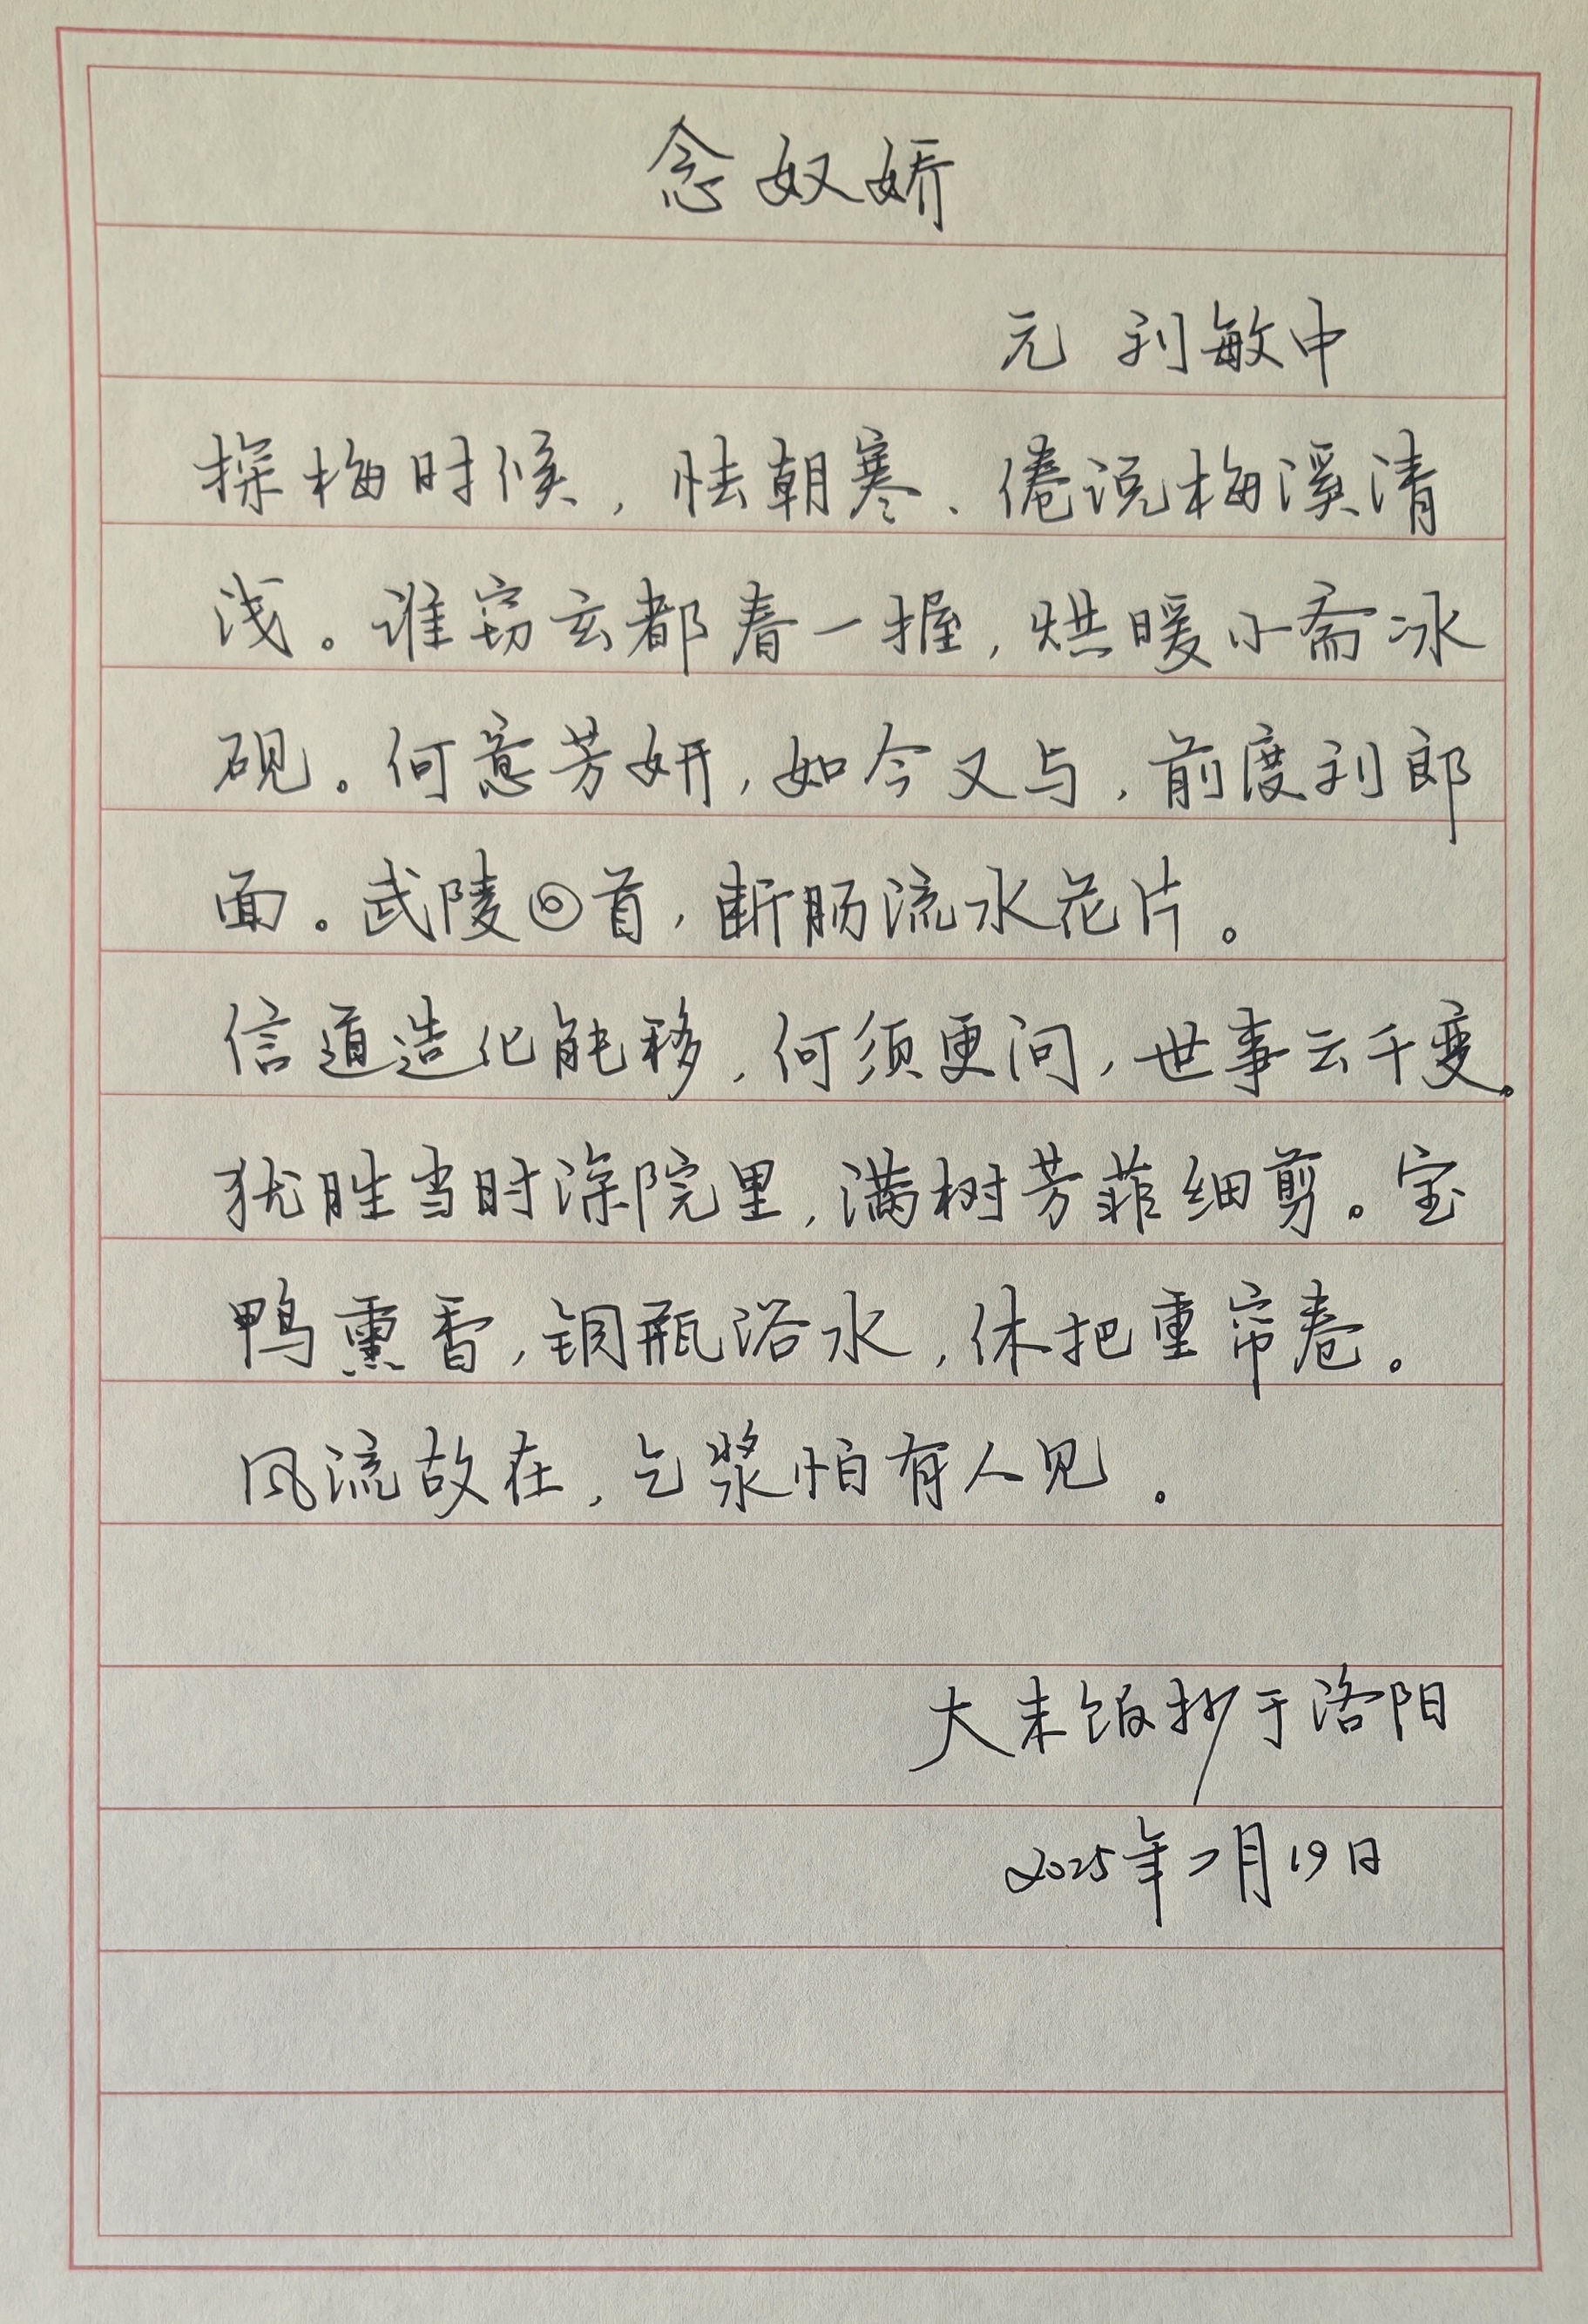 念奴娇
元 刘敏中
探梅时候，怯朝寒、倦说梅溪清
浅。谁窃玄都春一握，烘暖小斋冰
砚。何意芳妍，如今又与，前度刘郎
面。武陵回首，断肠流水花片。
信道造化能移，何须更问，世事云千变。
犹胜当时深院里，满树芳菲细剪。宝
鸭熏香，铜瓶浴水，休把重帘卷。
风流故在，乞浆怕有人见。
大末饭抄于洛阳
2025年二月19日